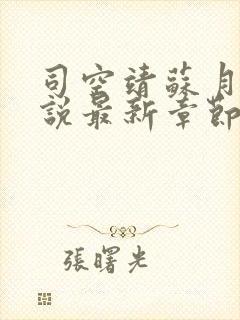 司空靖蘇月
說最新章節
張曙光